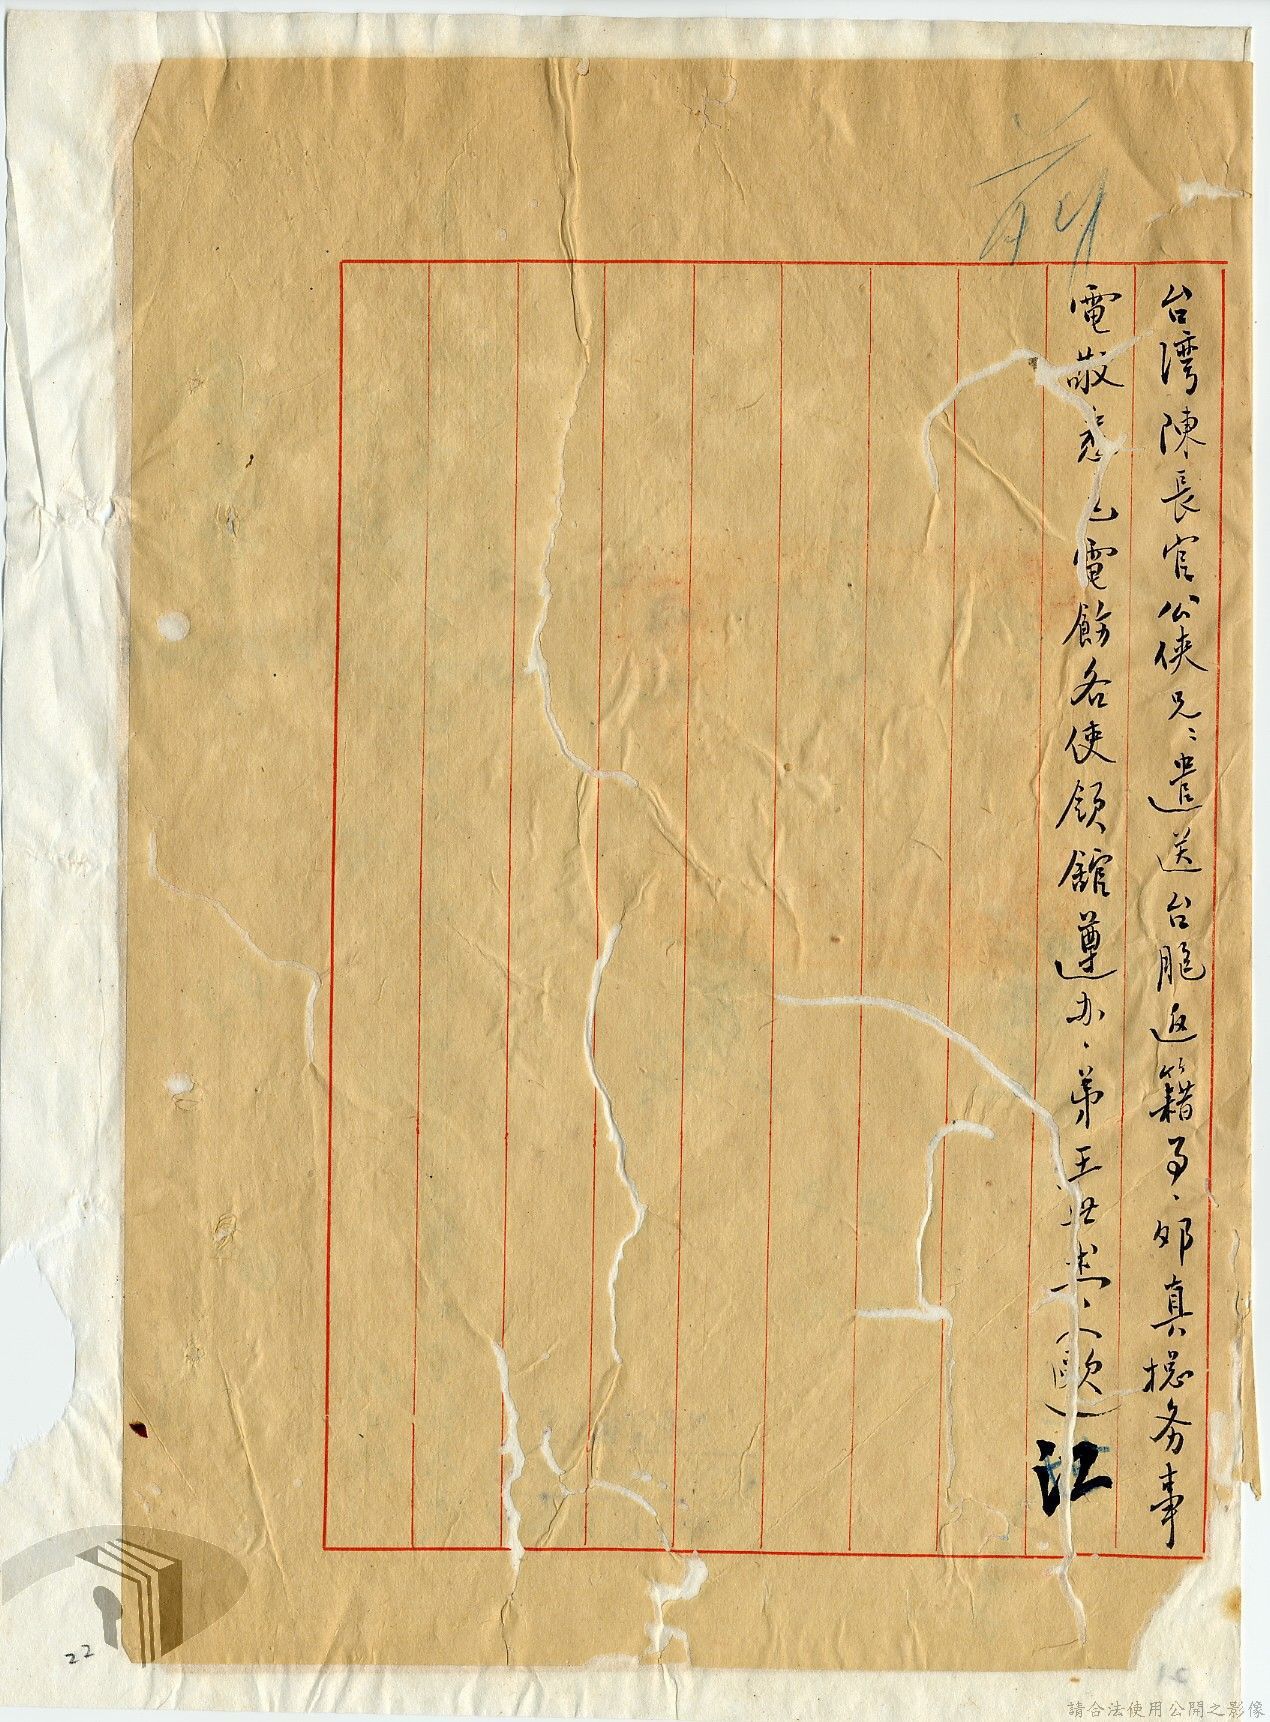 台湾陳長官公俠兄：遣送台胞返籍事、卯真總务事
電敬悉已電飭各使領館遵办、弟王世杰、(歐)
江
22
請合法使用公開之影像